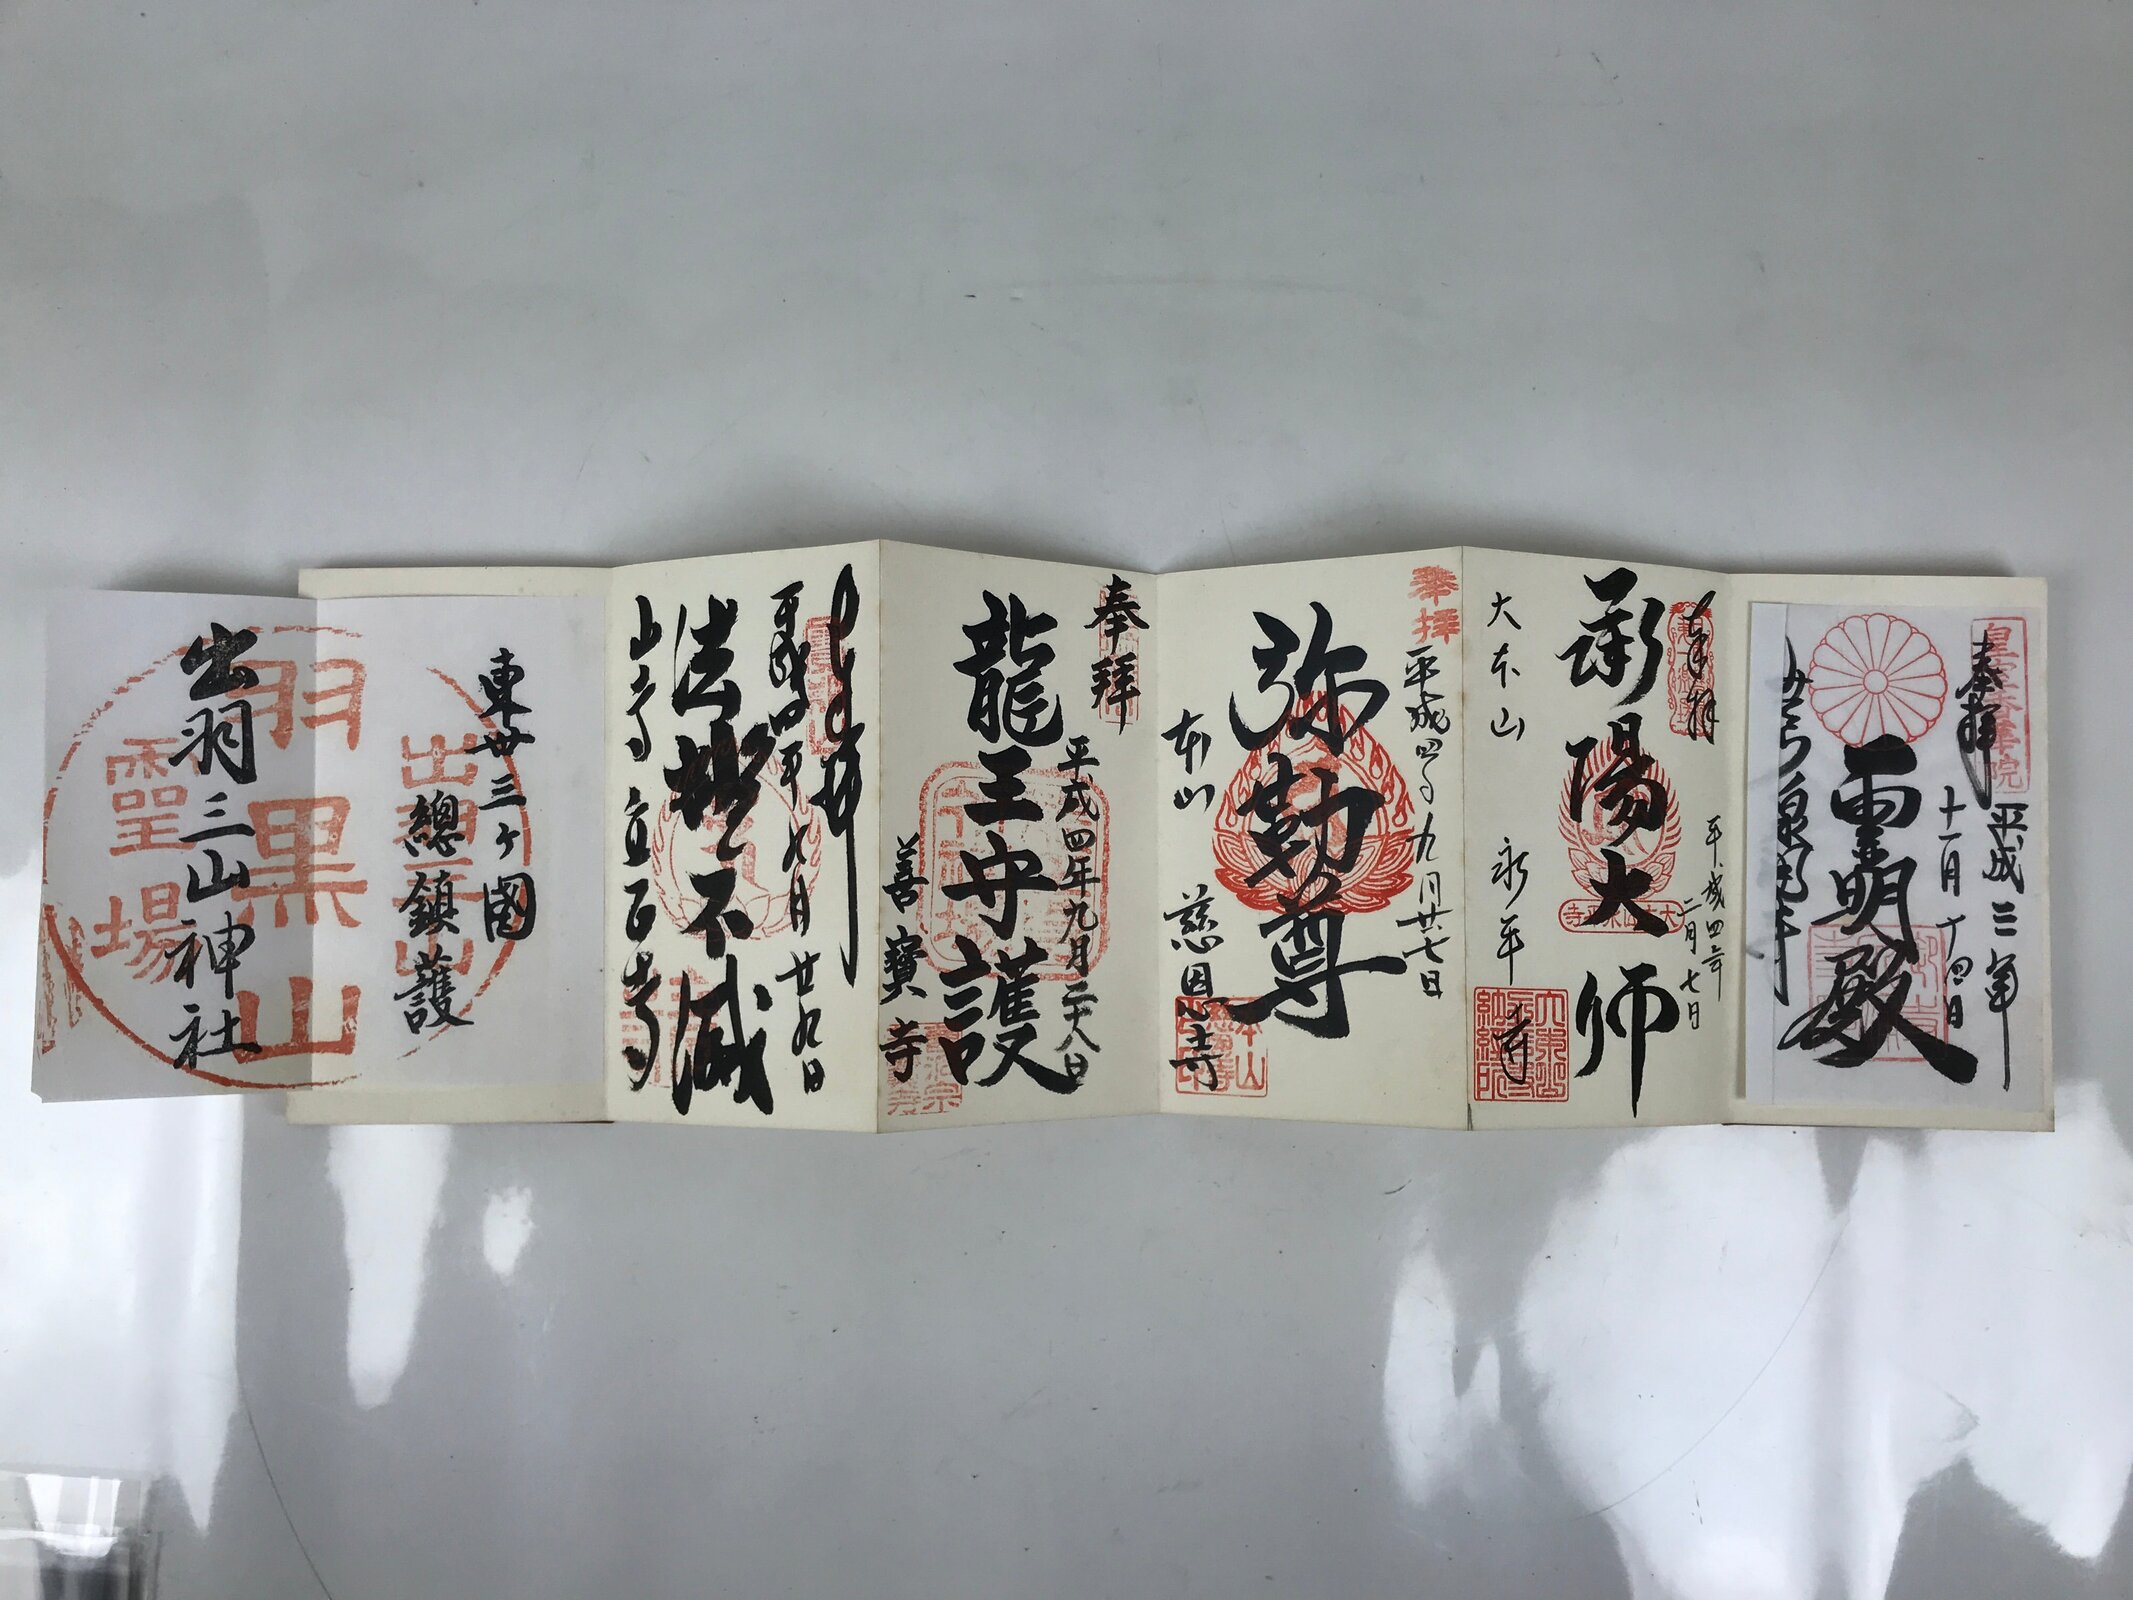 奉拝
平成三年
十一月十四日
霊明殿
奉拝
平成四年
二月七日
承陽大師
大本山 永平寺
奉拝
平成四年九月廿七日
弥勒尊
本山 慈恩寺
奉拝
平成四年九月二十八日
龍王守護
善寳寺
奉拝
平成四年九月廿九日
法燈不滅
山寺立石寺
東廿三ヶ國
總鎮護
出羽三山神社
羽黒山
霊場